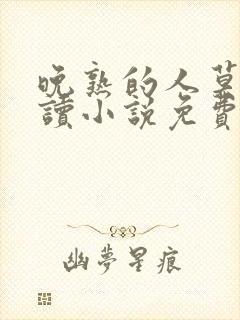 晚熟的人莫
讀小說免費
幽夢星痕